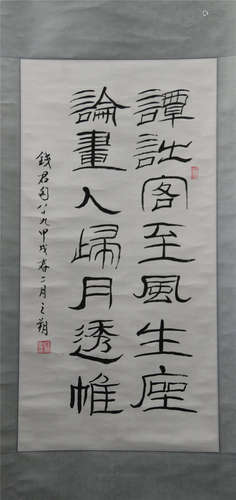 譚詩客至風生座
論畫人歸月透帷
錢君匋八九甲戌春二月之朔